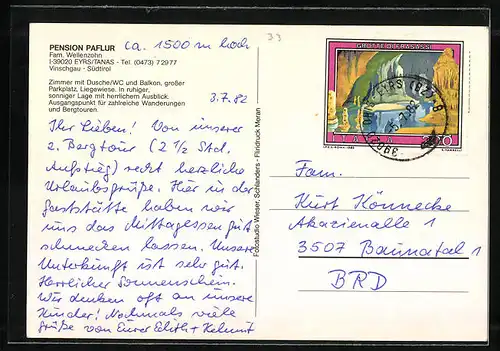 PENSION PAFLUR
Fam. Wellenzohn
I-39020 EYRS/TANAS - Tel. (0473) 72977
Vinschgau - Südtirol
ca. 1500 m hoch
33
Zimmer mit Dusche/WC und Balkon, großer
Parkplatz, Liegewiese. In ruhiger,
sonniger Lage mit herrlichem Ausblick.
Ausgangspunkt für zahlreiche Wanderungen
und Bergtouren.
3.7.82
Ihr Lieben! Von unserer
2. Bergtour (2 1/2 Std.
Aufstieg) recht herzliche
Urlaubsgrüße. Hier in der
Gaststätte haben wir
uns das Mittagessen gut
schmecken lassen. Unsere
Unterkunft ist sehr gut.
Herrlicher Sonnenschein.
Wir denken oft an unsere
Kinder! Nochmals viele
Grüße von Eurer Edith + Helmut
Fotostudio Wieser, Schlanders - Flridruck Meran
GROTTE DI FRASASSI
ITALIA
EYRS (BZ)
Fam.
Kurt Könnecke
Akazienallee 1
3507 Baunatal 1
BRD